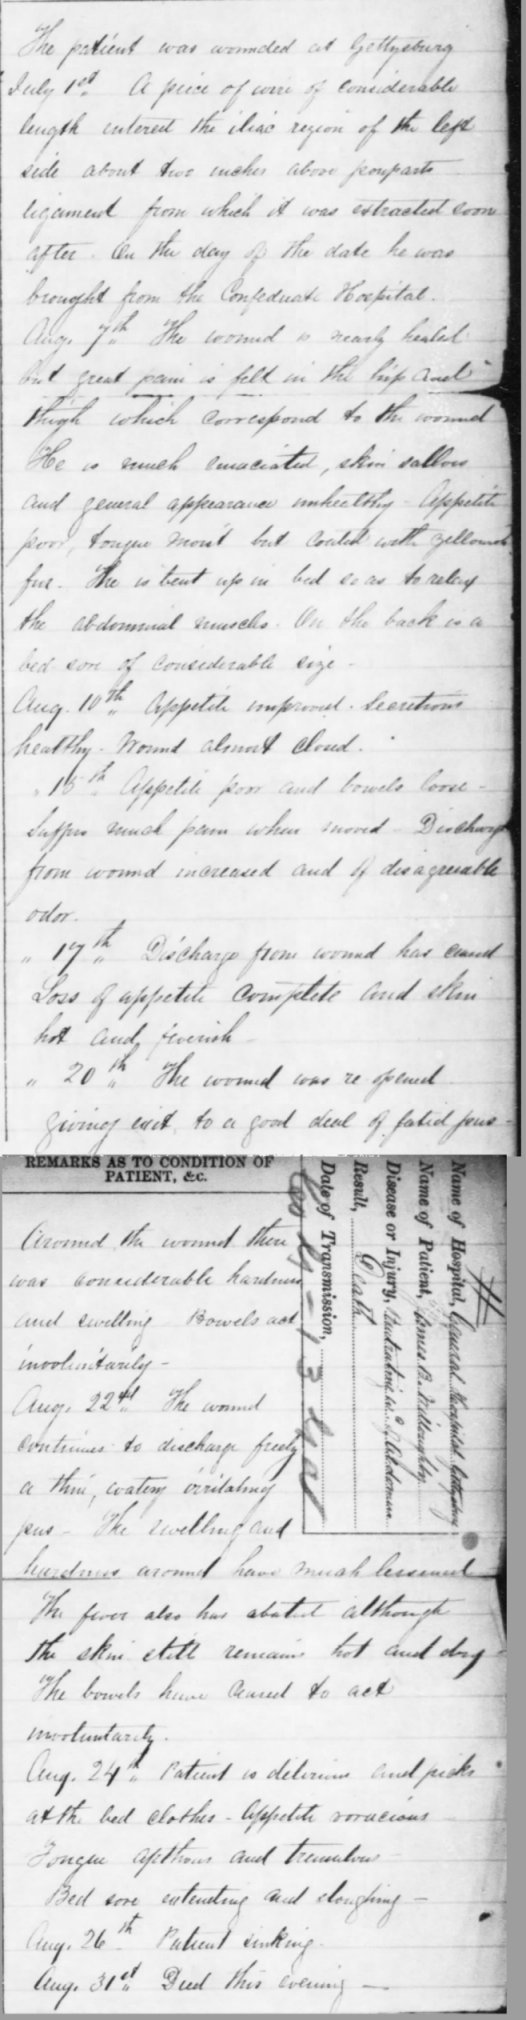 The patient was wounded at Gettysburg
July 1st A piece of wire of considerable
length entered the iliac region of the left
side about two inches above pouparts
ligament from which it was extracted soon
after. On the day of the date he was
brought from the Confederate Hospital.
Aug. 7th The wound is nearly healed
but great pain is felt in the hip and
thigh which correspond to the wound
He is much emaciated, skin sallow
and general appearance unhealthy - Appetite
poor, tongue moist but coated with yellowish
fur. He is bent up in bed so as to relax
the abdominal muscles. On the back is a
bed sore of considerable size -
Aug. 10th Appetite improved. Secretions
healthy. Wound almost closed.
" 15th Appetite poor and bowels loose -
Suffers much pain when moved - Discharge
from wound increased and of disagreeable
odor.
" 17th Discharge from wound has ceased
Loss of appetite complete and skin
hot and feverish -
" 20th The wound was re-opened
giving exit to a good deal of fatid pus -
REMARKS AS TO CONDITION OF
PATIENT, &C.
Around the wound there
was considerable hardness
and swelling - Bowels act
involuntarily -
Aug. 22nd The wound
continues to discharge freely
a thin, watery irritating
pus - The swelling and
hardness around have much lessened
The fever also has abated although
the skin still remains hot and dry -
The bowels have ceased to act
involuntarily.
Aug. 24th Patient is delirious and picks
at the bed clothes - Appetite voracious
Tongue apthous and tremulous -
Bed sore extending and sloughing -
Aug. 26th Patient sinking.
Aug. 31st Died this evening -
Name of Hospital, General Hospital Gettysburg
Name of Patient, Willoughby
Disease or Injury, Penetrating Abdomen
Result, Death
Date of Transmission,